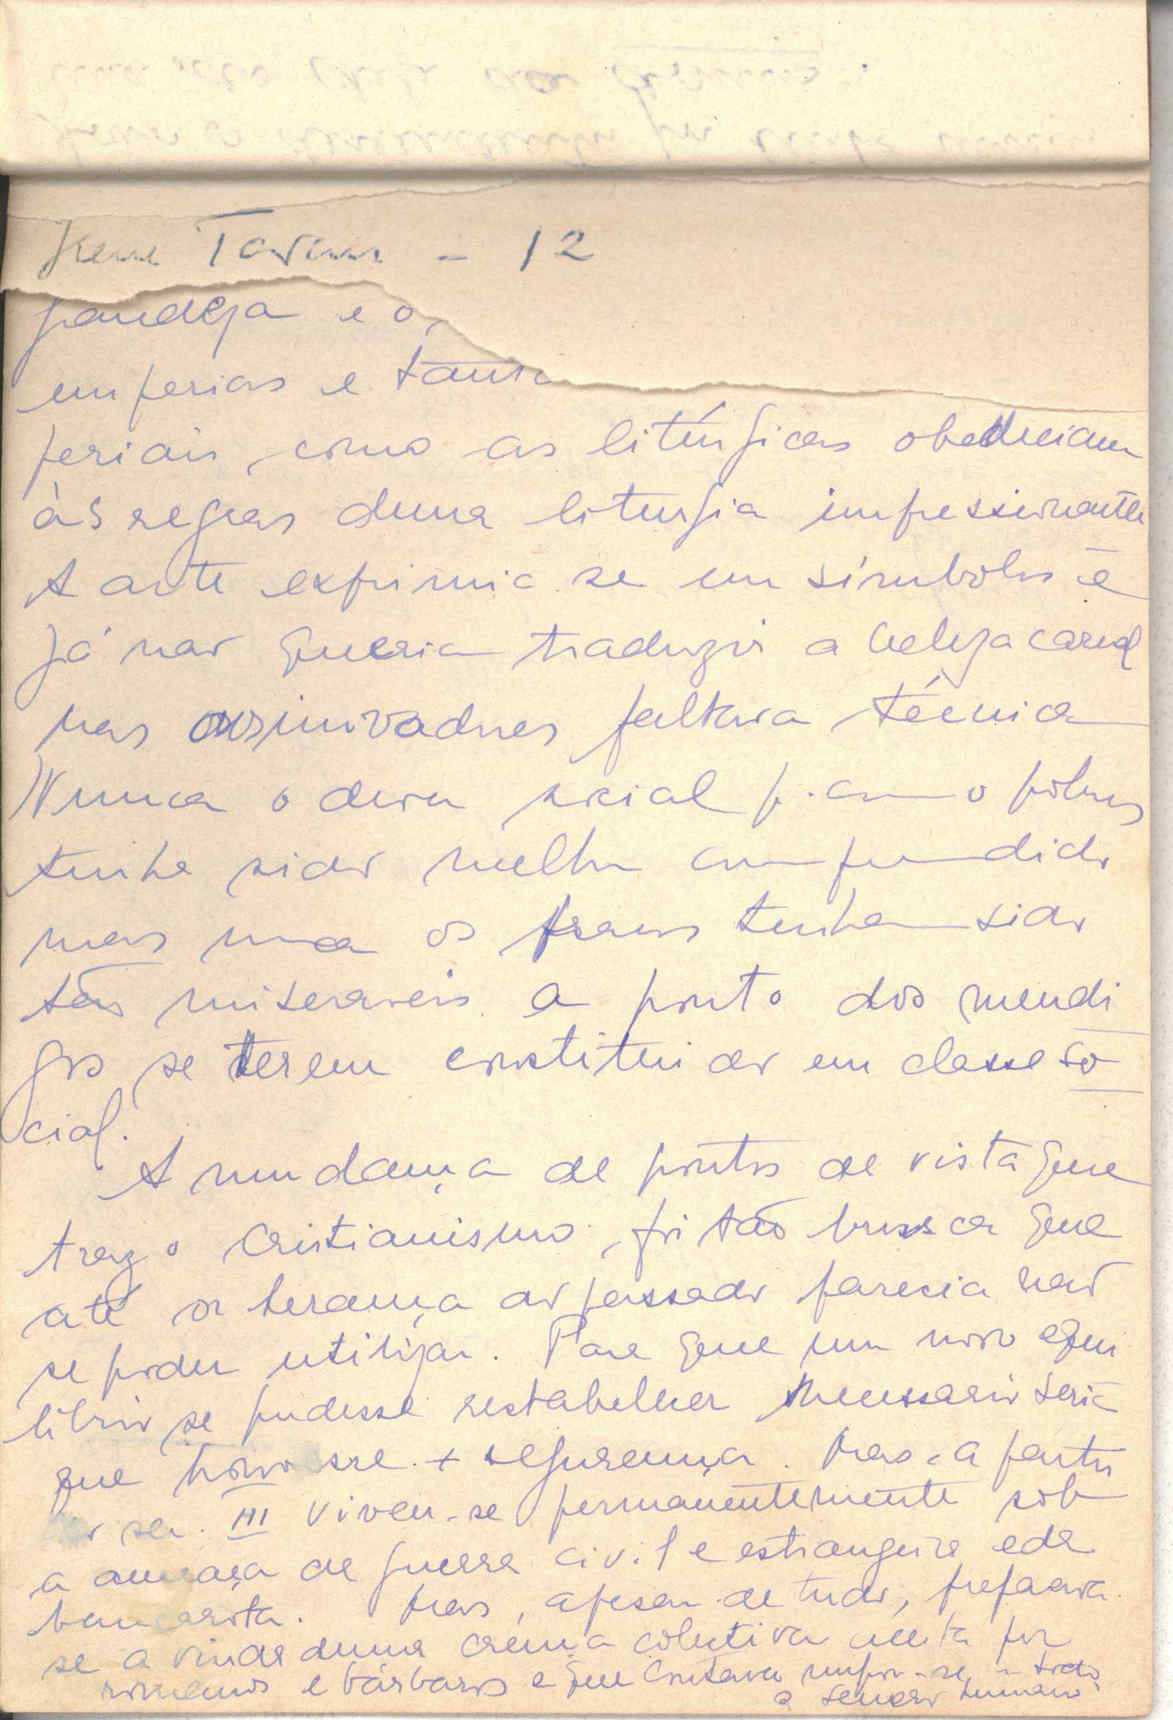 Irene Tavares - 12
grandeza e o
imperias e tanto
periais, como as litúrgicas obedeciam
às regras duma liturgia impressionante
A arte exprimia se em símbolos e
já não queria traduzir a beleza carnal
mas aos inovadores faltava técnica
Nunca o dever social p. com o pobres
tinha sido melhor compreendido
mas nunca os fracos tinham sido
tão miseraveis a ponto dos mendi
gos se terem constituido em classe so
cial.
A mudança de pontos de vista que
traz o Cristianismo, foi tão brusca que
até a herança do passado parecia não
se poder utilizar. Para que um novo equi
librio se pudesse restabelecer necessario seria
que houvesse + segurança. Mas, a partir
do sec. III viveu-se permanentemente sob
a ameaça de guerra civil e estrangeira e da
bancarrota. Mas, apesar de tudo, preparava
se a vinda duma crença colectiva aceita por
romanos e bárbaros e que tentava impor-se a todo
o ser humano